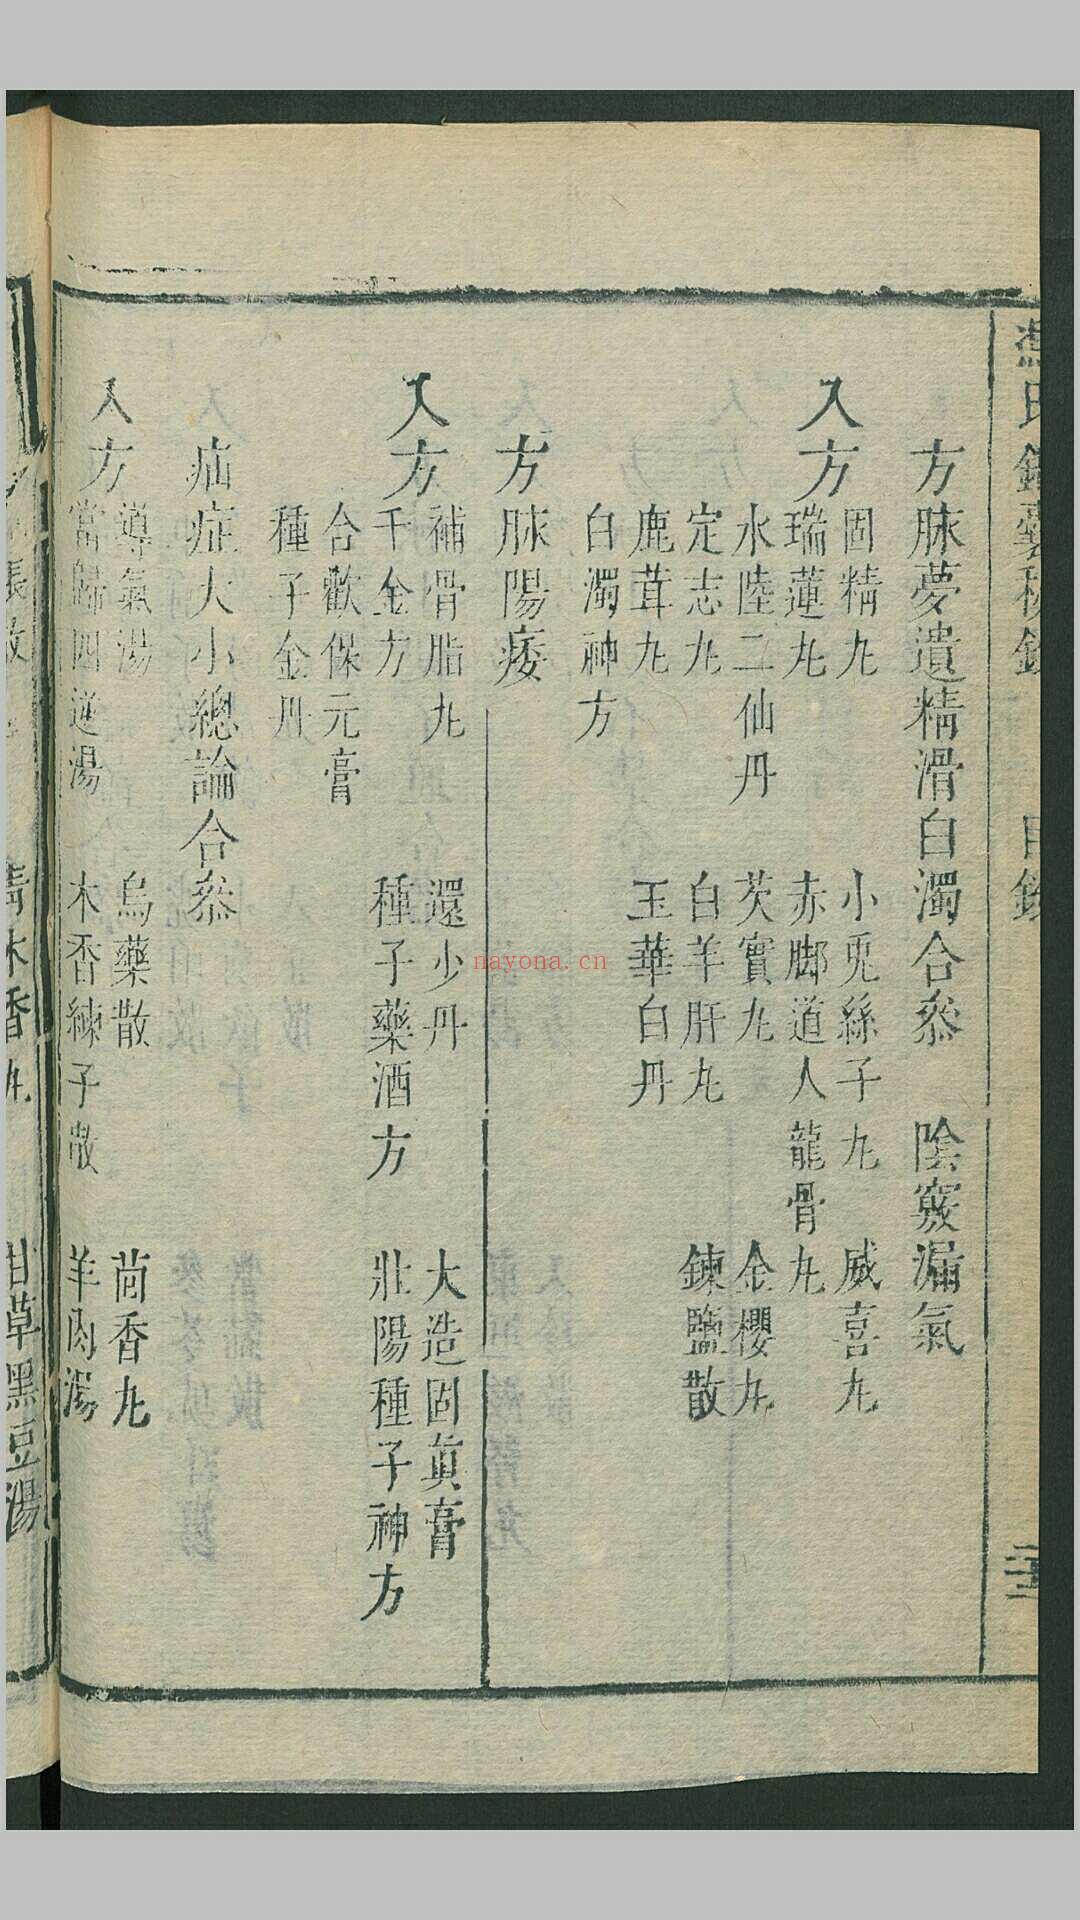 馮氏錦囊秘錄 目錄 二十三
方脉夢遺精滑白濁合叅 陰竅漏氣
入方
固精丸 小兎絲子丸 威喜丸
瑞蓮丸 赤脚道人龍骨丸
水陸二仙丹 茨實丸 金櫻丸
定志丸 白羊肝丸 鍊鹽散
鹿茸丸 玉華白丹
白濁神方
方脉陽痿
入方
補骨脂丸 還少丹 大造固眞膏
千金方 種子藥酒方 壯陽種子神方
合歡保元膏
種子金丹
疝症大小總論合叅
入方
導氣湯 烏藥散 茴香丸
當歸四逆湯 木香練子散 羊肉湯
青木香丸 甘草黑豆湯
nayona.cn